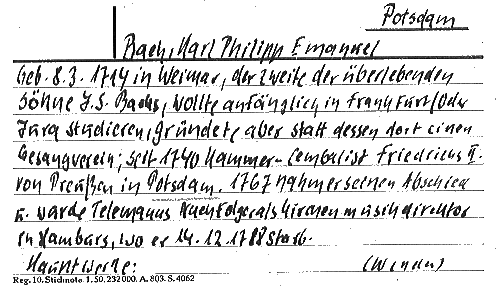 Potsdam
Bach, Karl Philipp Emanuel
Geb. 8.3. 1714 in Weimar, der zweite der überlebenden
Söhne J.S. Bachs, wollte anfänglich in Frankfurt/Oder
Jura studieren, gründete aber statt dessen dort einen
Gesangverein; seit 1740 Kammer-Cembalist Friedrichs II.
von Preußen in Potsdam. 1767 nahm er seinen Abschied
u. wurde Telemanns Nachfolger als Kirchenmusikdirektor
in Hamburg, wo er 14.12.1788 starb.
Hauptwerke:
Reg. 10. Stichnote. 1. 50. 232000. A. 803. S. 4062